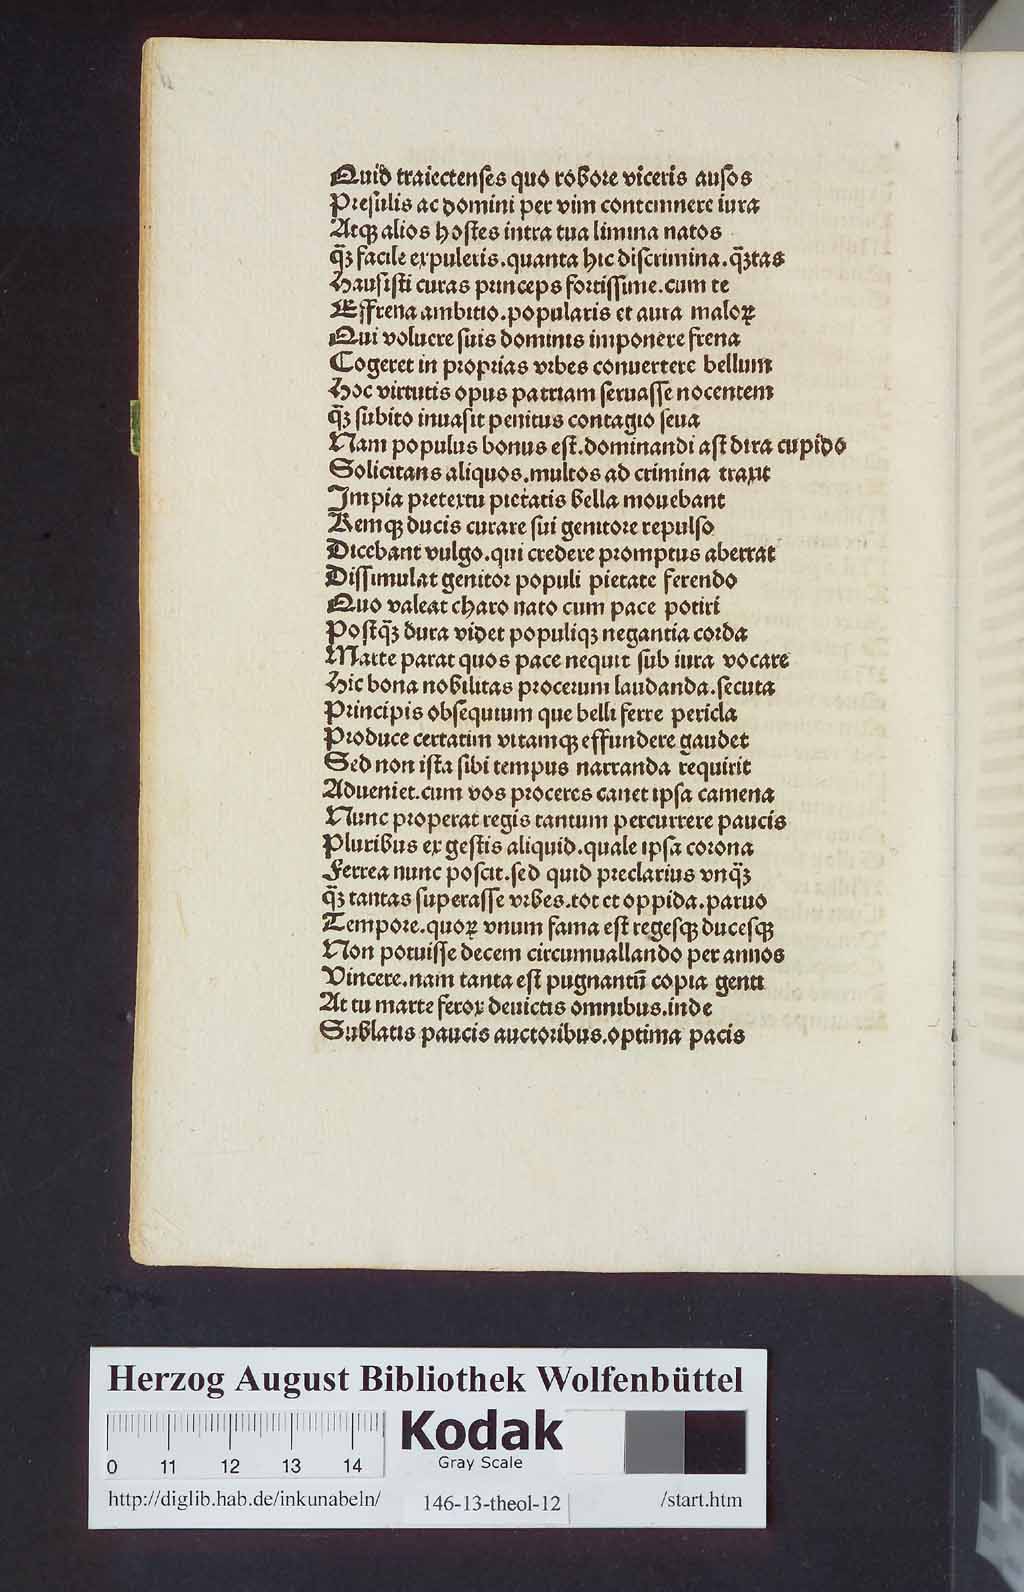 Quid traiectenses quo robore viceris ausos
Presulis ac domini per vim contemnere iura
Atqꝫ alios hostes intra tua limina natos
q̄ꝫ facile expuleris.quanta hic discrimina.q̄ꝫtas
Hausisti curas princeps fortissime.cum te
Effrena ambitio.popularis et aura maloꝝ
Qui voluere suis dominis imponere frena
Cogeret in proprias vrbes conuertere bellum
Hoc virtutis opus patriam seruasse nocentem
q̄ꝫ subito inuasit penitus contagio seua
Nam populus bonus est.dominandi ast dira cupido
Solicitans aliquos.multos ad crimina traxit
Impia pretextu pietatis bella mouebant
Remqꝫ ducis curare sui genitore repulso
Dicebant vulgo.qui credere promptus aberrat
Dissimulat genitor populi pietate ferendo
Quo valeat charo nato cum pace potiri
Postq̄ꝫ dura videt populiqꝫ negantia corda
Marte parat quos pace nequit sub iura vocare
Hic bona nobilitas procerum laudanda.secuta
Principis obsequium que belli ferre pericla
Produce certatim vitamqꝫ effundere gaudet
Sed non ista sibi tempus narranda requirit
Adueniet.cum vos proceres canet ipsa camena
Nunc properat regis tantum percurrere paucis
Pluribus ex gestis aliquid.quale ipsa corona
Ferrea nunc poscit.sed quid preclarius vnq̄ꝫ
q̄ꝫ tantas superasse vrbes.tot et oppida.paruo
Tempore.quoꝝ vnum fama est regesqꝫ ducesqꝫ
Non potuisse decem circumuallando per annos
Vincere.nam tanta est pugnantū copia genti
At tu marte ferox deuictis omnibus.inde
Sublatis paucis auctoribus.optima pacis
Herzog August Bibliothek Wolfenbüttel
Kodak
Gray Scale
0 11 12 13 14
http://diglib.hab.de/inkunabeln/ 146-13-theol-12 /start.htm